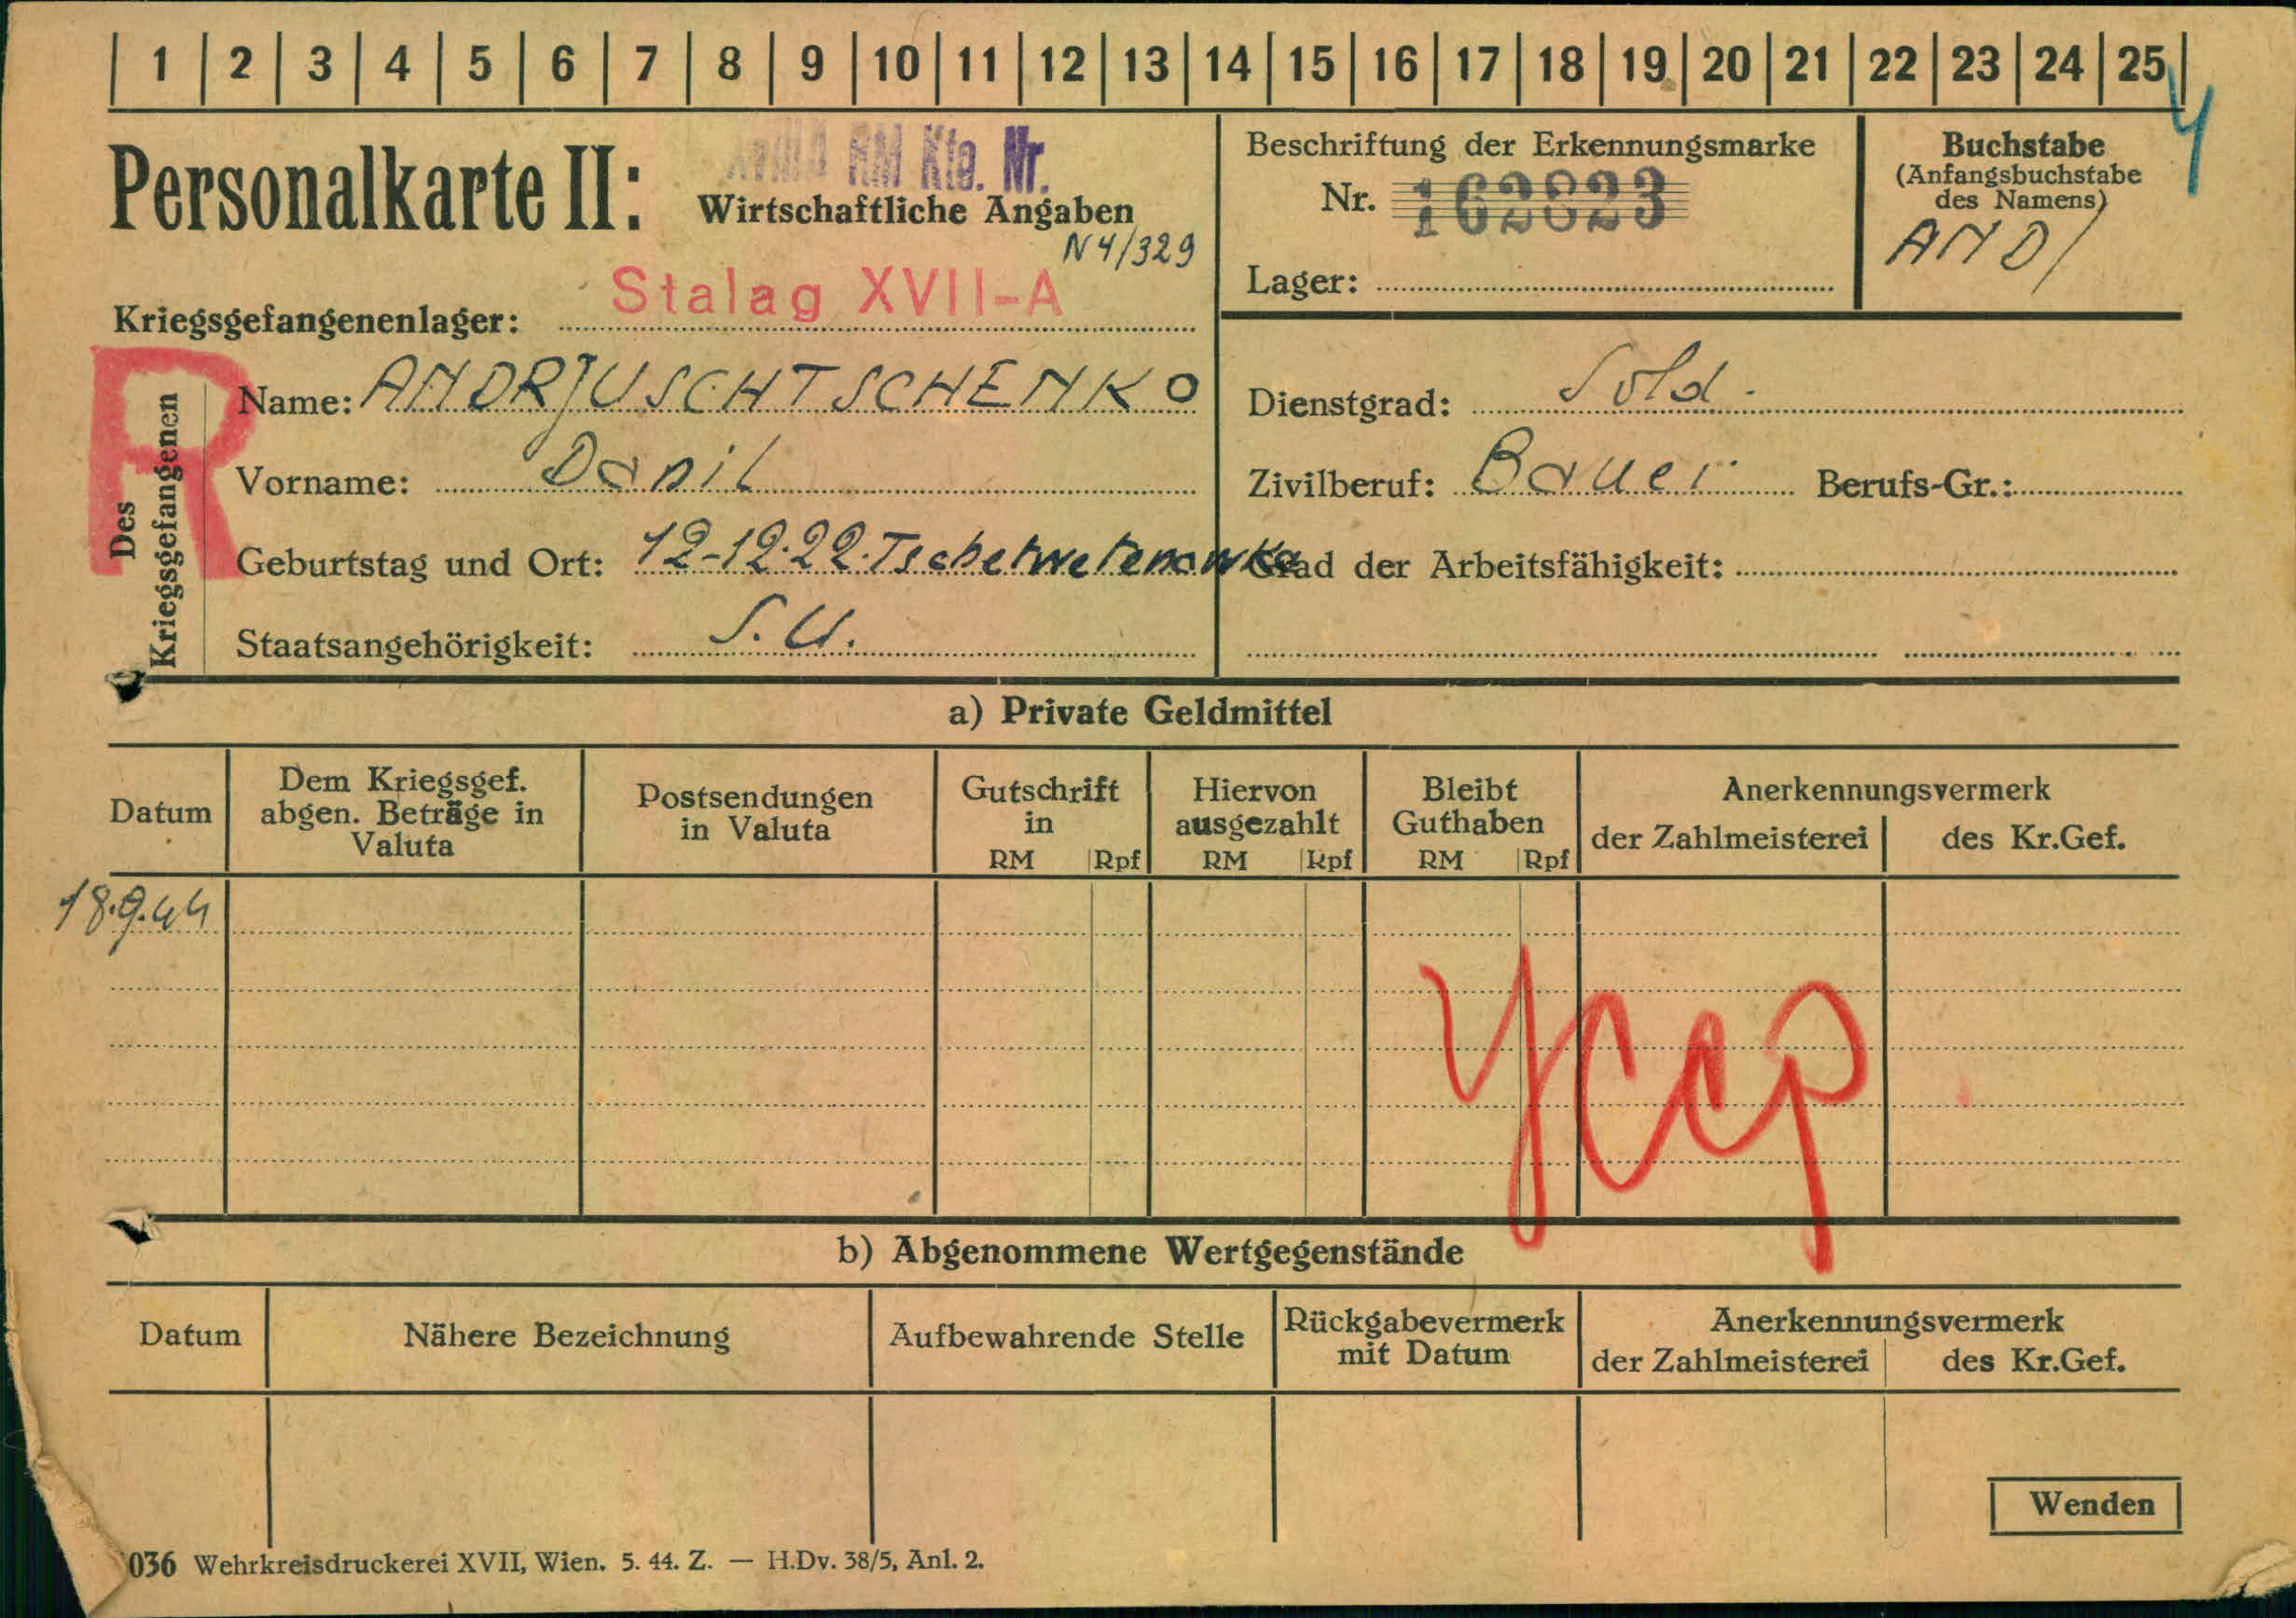 1 2 3 4 5 6 7 8 9 10 11 12 13 14 15 16 17 18 19 20 21 22 23 24 25
4
Personalkarte II:
RM Kfg. Nr.
Wirtschaftliche Angaben
N4/329
Beschriftung der Erkennungsmarke
Nr. 162823
Lager:
Buchstabe
(Anfangsbuchstabe
des Namens)
AND/
Kriegsgefangenenlager: Stalag XVII-A
R
Des
Kriegsgefangenen
Name: ANDRJUSCHTSCHENKO
Vorname: Danil
Geburtstag und Ort: 12-12.22. Tschetwetenowka
Staatsangehörigkeit: S.U.
Dienstgrad: Sold.
Zivilberuf: Bauer Berufs-Gr.:
Grad der Arbeitsfähigkeit:
a) Private Geldmittel
Datum
Dem Kriegsgef.
abgen. Beträge in
Valuta
Postsendungen
in Valuta
Gutschrift
in
RM Rpf
Hiervon
ausgezahlt
RM Rpf
Bleibt
Guthaben
RM Rpf
Anerkennungsvermerk
der Zahlmeisterei des Kr.Gef.
18.9.44
Усср
b) Abgenommene Wertgegenstände
Datum
Nähere Bezeichnung
Aufbewahrende Stelle
Rückgabevermerk
mit Datum
Anerkennungsvermerk
der Zahlmeisterei des Kr.Gef.
Wenden
036 Wehrkreisdruckerei XVII, Wien. 5. 44. Z. — H.Dv. 38/5, Anl. 2.